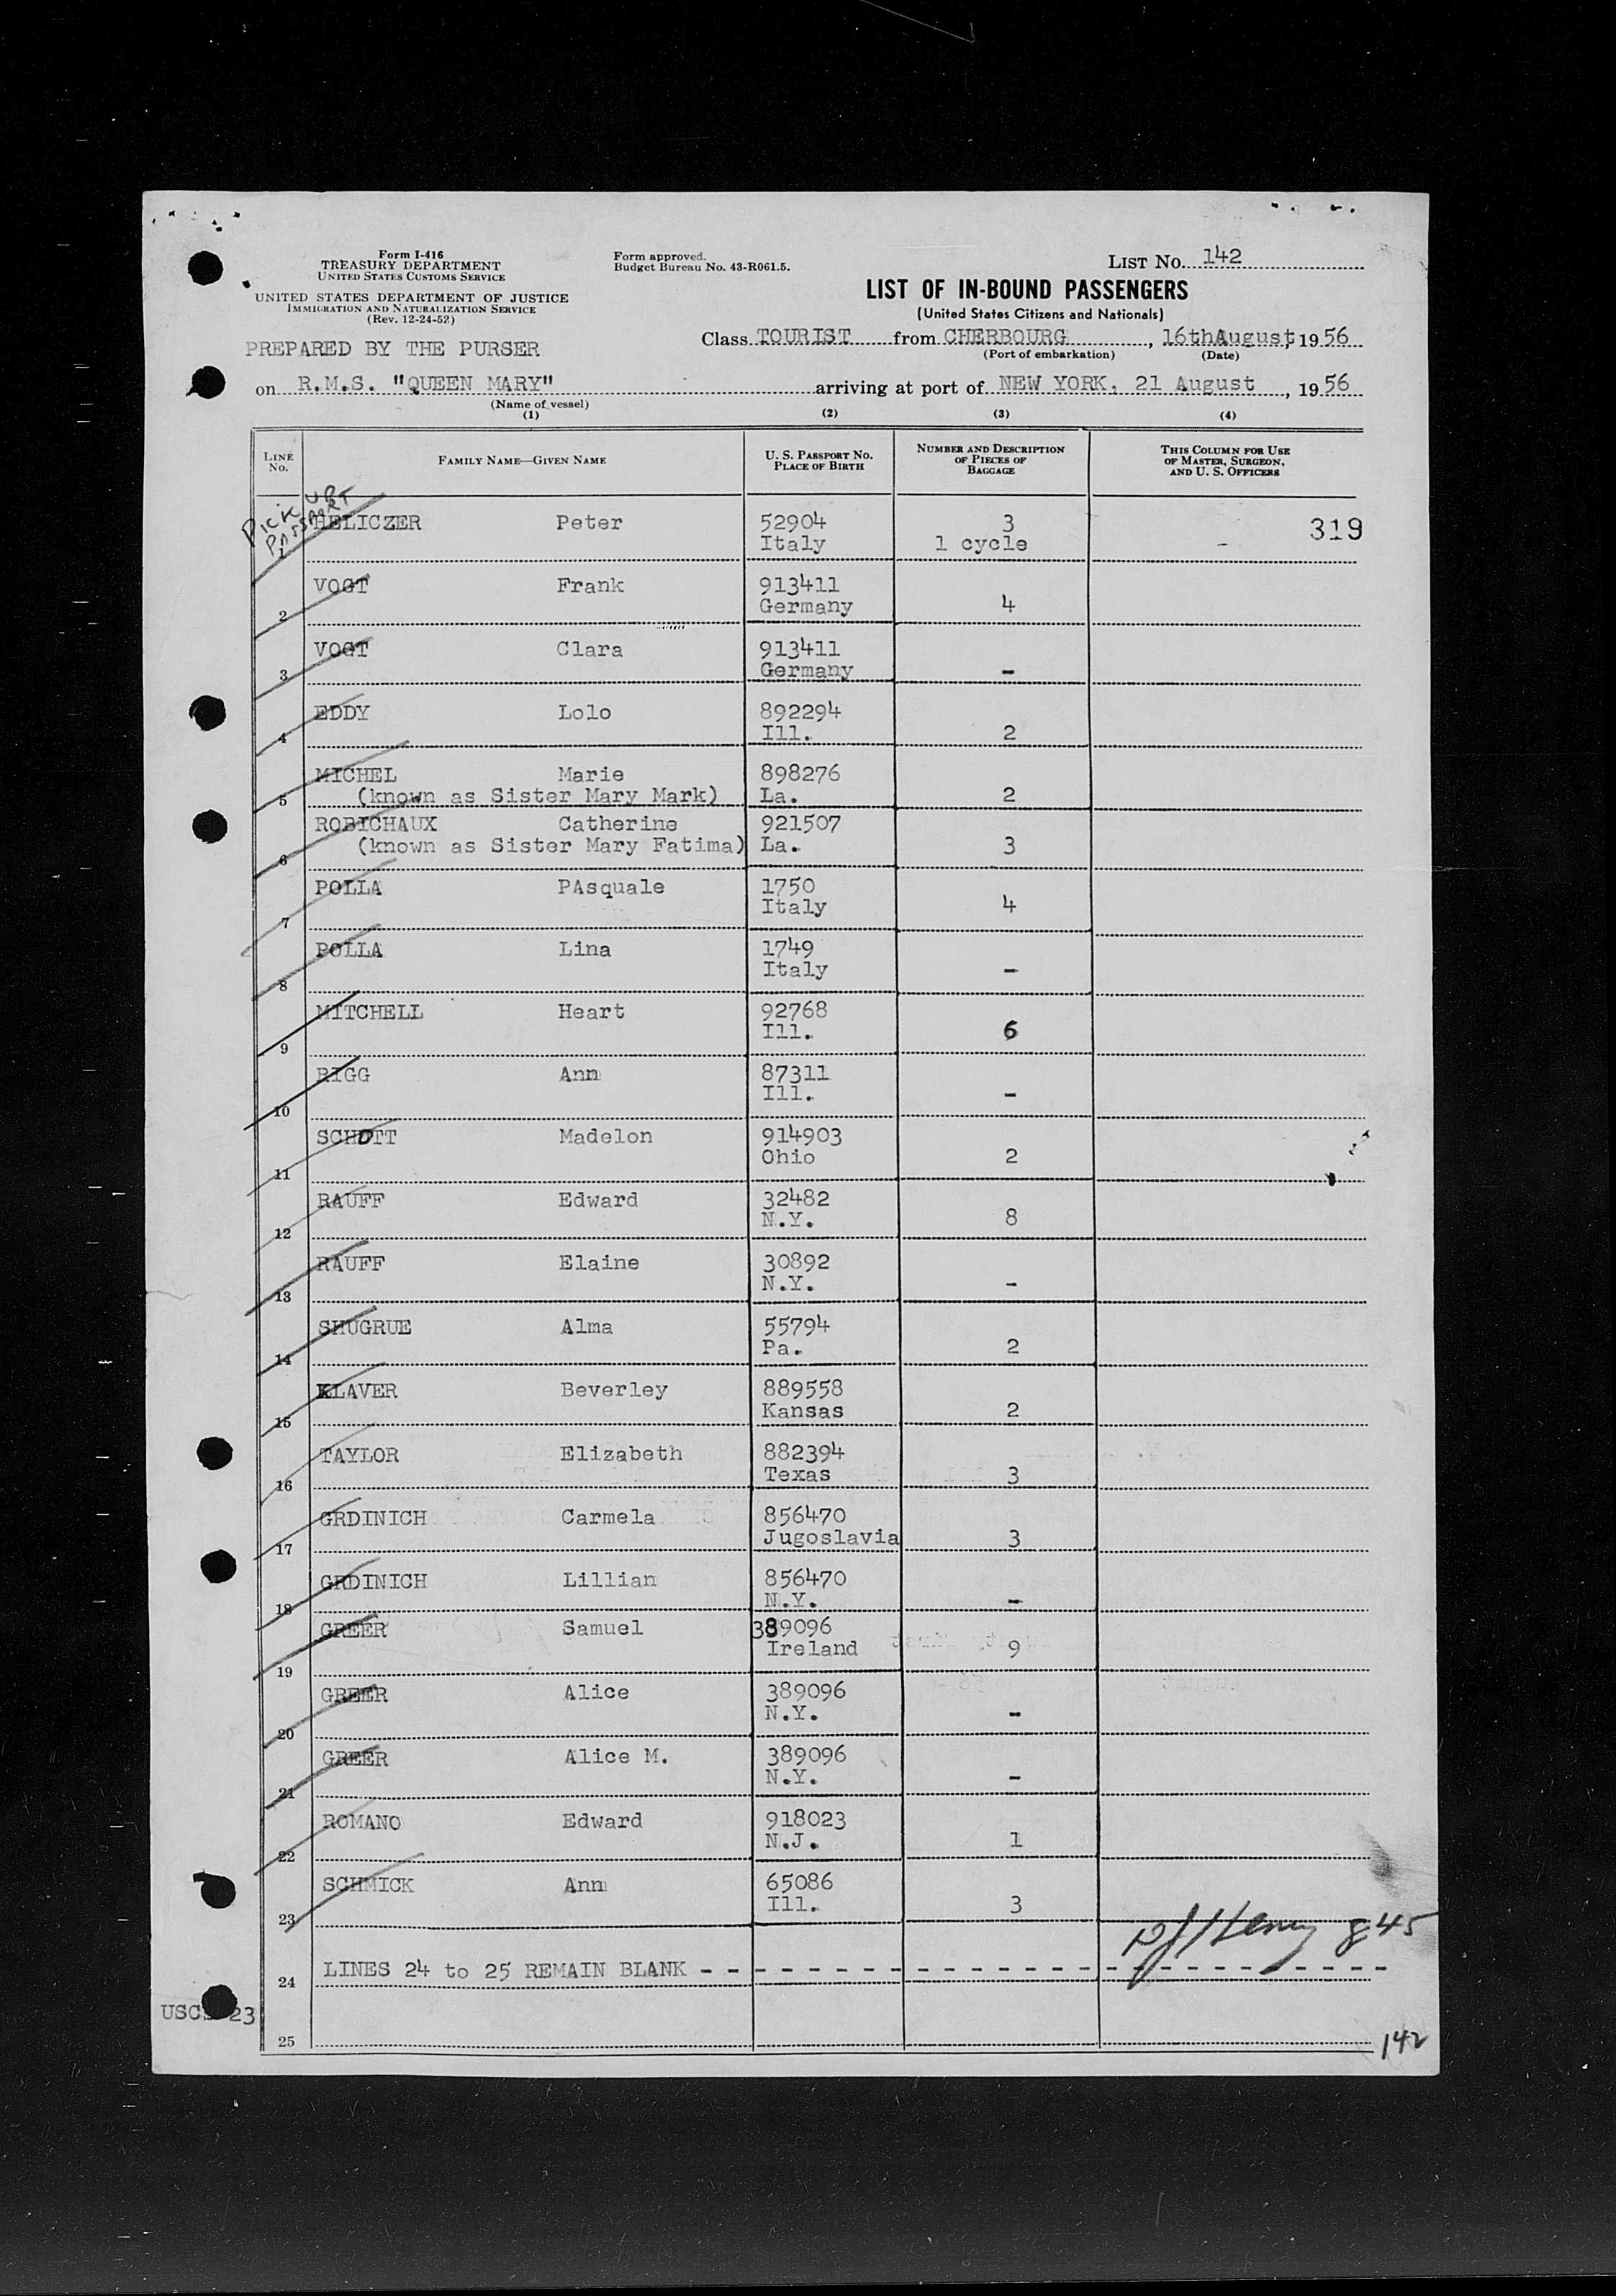 Form I-416
TREASURY DEPARTMENT
UNITED STATES CUSTOMS SERVICE
UNITED STATES DEPARTMENT OF JUSTICE
IMMIGRATION AND NATURALIZATION SERVICE
(Rev. 12-24-52)
Form approved.
Budget Bureau No. 43-R061.5.
LIST NO. 142
LIST OF IN-BOUND PASSENGERS
(United States Citizens and Nationals)
PREPARED BY THE PURSER
Class TOURIST from CHERBOURG, 16thAugust, 1956
(Port of embarkation) (Date)
on R.M.S. "QUEEN MARY" arriving at port of NEW YORK, 21 August, 1956
(Name of vessel)
(1) (2) (3) (4)
LINE NO. FAMILY NAME—GIVEN NAME U. S. PASSPORT NO. PLACE OF BIRTH NUMBER AND DESCRIPTION OF PIECES OF BAGGAGE THIS COLUMN FOR USE OF MASTER, SURGEON, AND U. S. OFFICERS
PICK UP
PASSPORT
HELICZER Peter 52904 3 319
1 Italy 1 cycle -
VOGT Frank 913411
2 Germany 4
VOGT Clara 913411
3 Germany -
EDDY Lolo 892294
4 Ill. 2
MICHEL Marie 898276
5 (known as Sister Mary Mark) La. 2
ROBICHAUX Catherine 921507
6 (known as Sister Mary Fatima) La. 3
POLLA PAsquale 1750
7 Italy 4
POLLA Lina 1749
8 Italy -
MITCHELL Heart 92768
9 Ill. 6
RIGG Ann 87311
10 Ill. -
SCHOTT Madelon 914903
11 Ohio 2
RAUFF Edward 32482
12 N.Y. 8
RAUFF Elaine 30892
13 N.Y. -
SHUGRUE Alma 55794
14 Pa. 2
KLAVER Beverley 889558
15 Kansas 2
TAYLOR Elizabeth 882394
16 Texas 3
GRDINICH Carmela 856470
17 Jugoslavia 3
GRDINICH Lillian 856470
18 N.Y. -
GREER Samuel 389096
19 Ireland 9
GREER Alice 389096
20 N.Y. -
GREER Alice M. 389096
21 N.Y. -
ROMANO Edward 918023
22 N.J. 1
SCHMICK Ann 65086
23 Ill. 3
Henry 845
24 LINES 24 to 25 REMAIN BLANK - - - - - - - - - - - - - - - - - - - -
USC 23
25
142